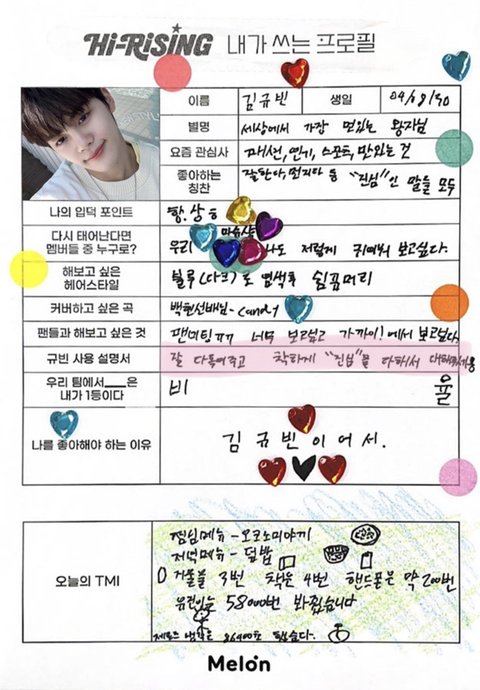 Hi-RiSiNG 내가 쓰는 프로필
이름 김규빈 생일 04/08/30
별명 세상에서 가장 멋있는 왕자님
요즘 관심사 패션, 연기, 스포츠, 맛있는 것
좋아하는 칭찬 잘한다, 멋지다 등 "진심"인 말들 모두
나의 입덕 포인트 항.상ㅎ
다시 태어난다면 멤버들 중 누구로? 우리 나도 저렇게 귀여워 보고싶다.
해보고 싶은 헤어스타일 블루(다크)로 염색후 쉼표머리
커버하고 싶은 곡 백현선배님-candy
팬들과 해보고 싶은 것 팬미팅ㅠㅠ 너무 보고싶고 가까이!에서 보고싶다.
규빈 사용 설명서 잘 다독여주고 착하게 "진심"을 다해서 대해주세용
우리 팀에서___은 내가 1등이다 비 율
나를 좋아해야 하는 이유 김규빈이어서.
오늘의 TMI
점심메뉴-오코노미야끼
저녁메뉴-덮밥
거울을 3번 책은 4번 핸드폰은 약 200번
유진이는 58000번 봐줬습니다
86400초 했습니다.
Melon